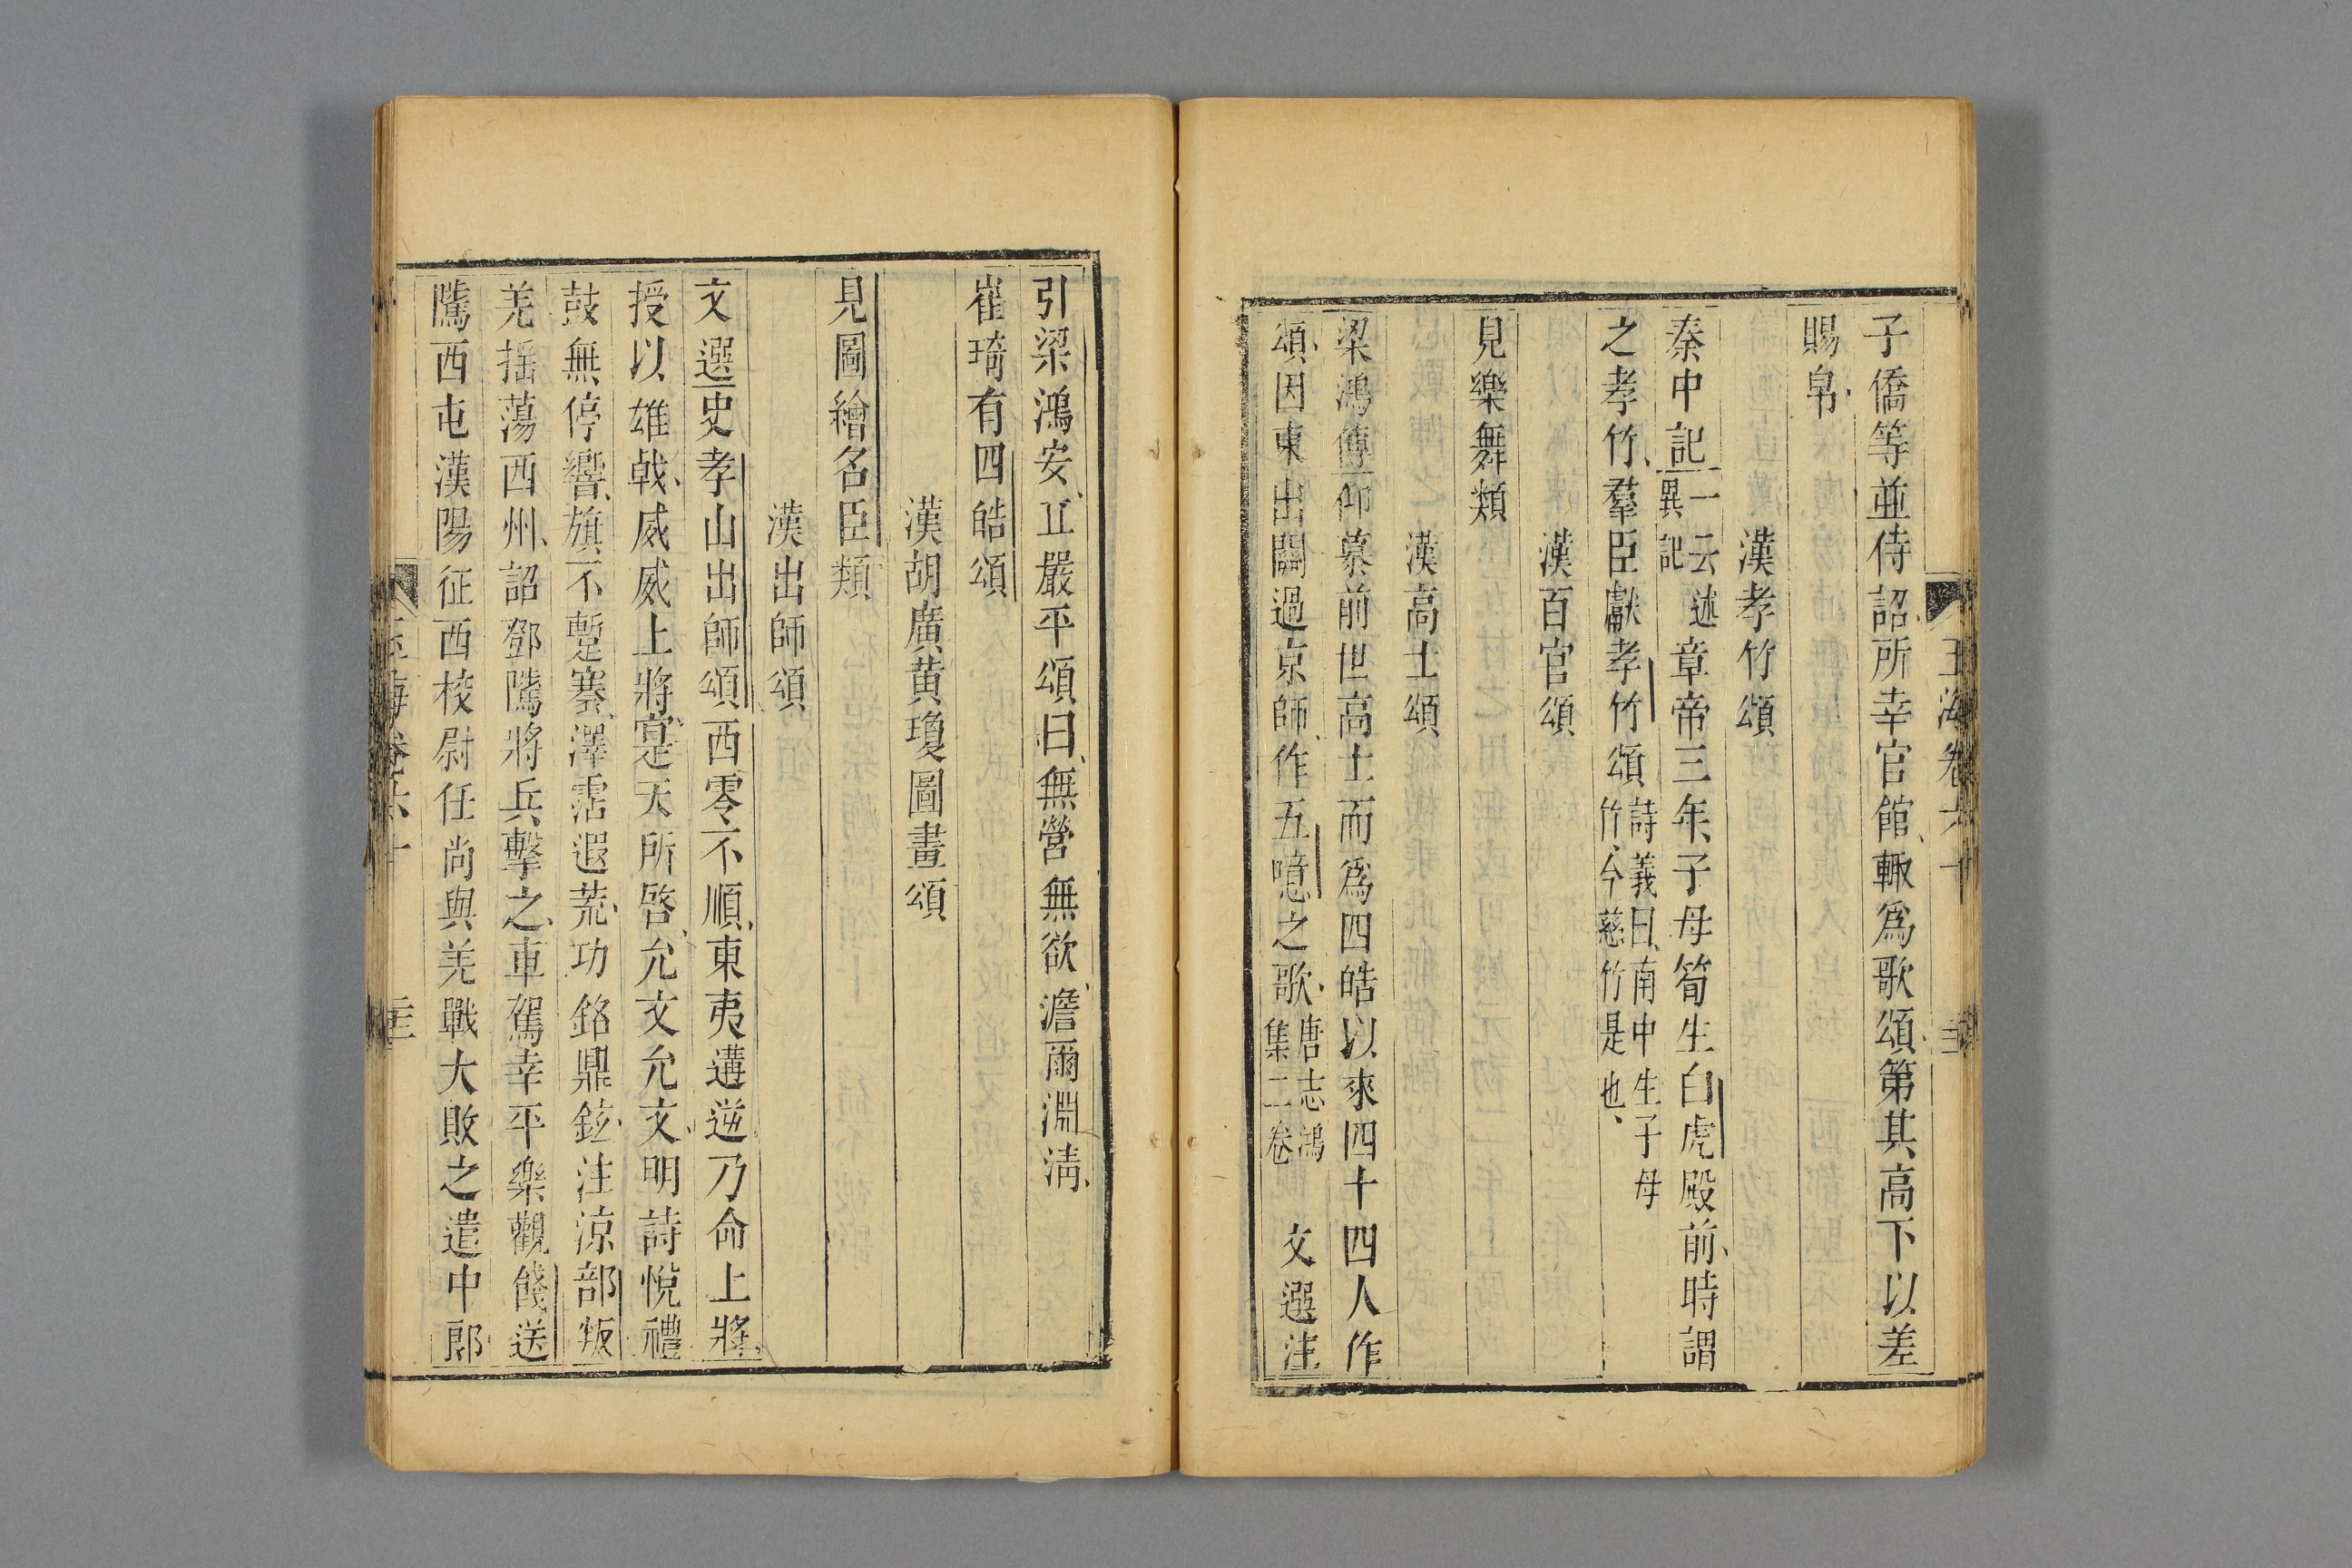 玉海卷六十
子僑等並侍詔所幸官館輙爲歌頌第其高下以差
賜帛
漢孝竹頌
秦中記一云述異記章帝三年子母筍生白虎殿前時謂
之孝竹羣臣獻孝竹頌詩義曰南中生子母竹今慈竹是也
漢百官頌
見樂舞類
漢高士頌
梁鴻傳仰慕前世高士而爲四皓以來四十四人作
頌因東出關過京師作五噫之歌唐志鴻集二卷 文選注
引梁鴻安丘嚴平頌曰無營無欲澹爾淵清
崔琦有四皓頌
漢胡廣黄瓊圖畫頌
見圖繪名臣類
漢出師頌
文選史孝山出師頌西零不順東夷遘逆乃命上將
授以雄戟威威上將寔天所啓允文允文明詩悅禮
鼓無停響旗不蹔褰澤霑遐荒功銘鼎鉉注涼部叛
羌搖蕩西州詔鄧隲將兵擊之車駕幸平樂觀餞送
隲西屯漢陽征西校尉任尚與羌戰大敗之遣中郎
玉海卷六十